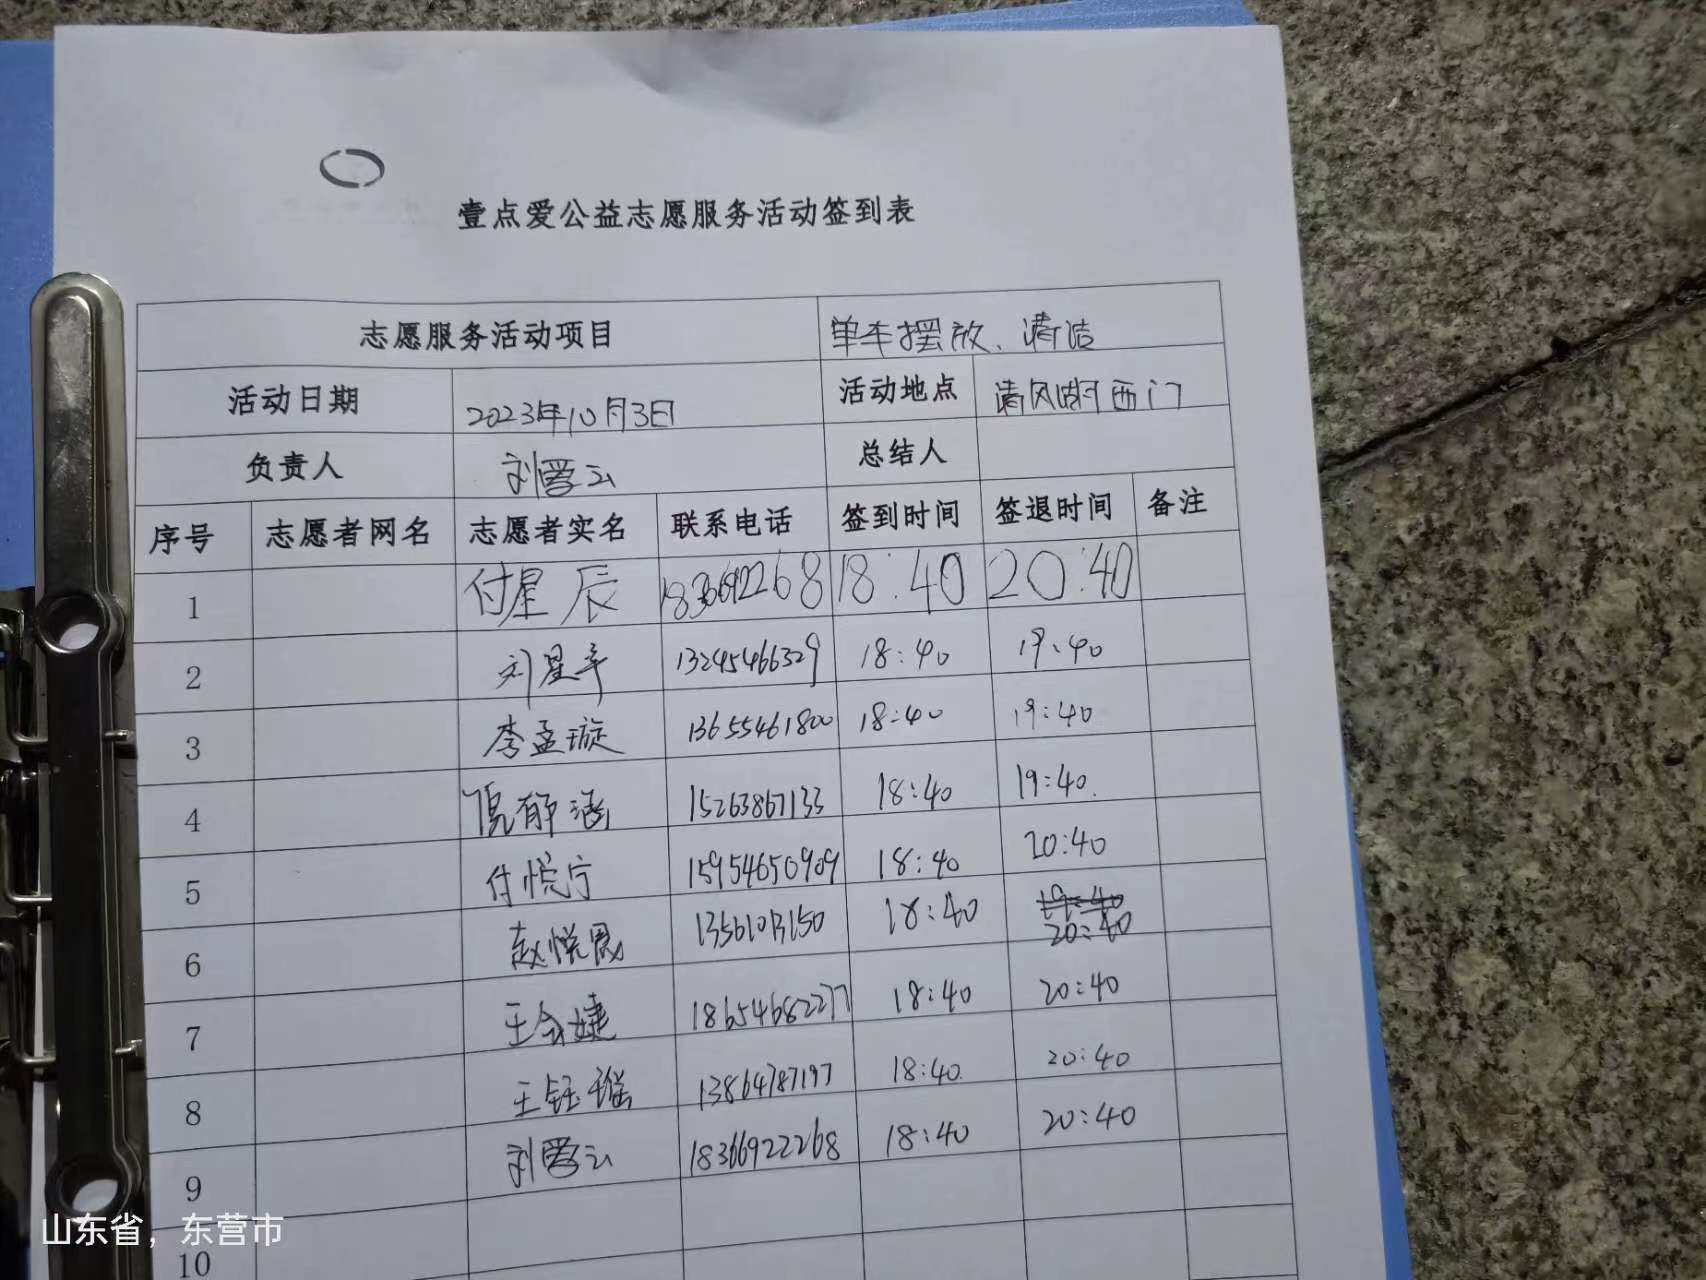 壹点爱公益志愿服务活动签到表
志愿服务活动项目 单车摆放、清洁
活动日期 2023年10月3日 活动地点 清风湖西门
负责人 刘爱云 总结人
序号 志愿者网名 志愿者实名 联系电话 签到时间 签退时间 备注
1 付星辰 18:40 20:40
2 刘星辛 13245466329 18:40 19:40
3 李孟璇 13655461800 18:40 19:40
4 倪郁涵 15263867133 18:40 19:40
5 付悦宁 15954650909 18:40 20:40
6 赵悦恩 18:40 19:40 20:40
7 王会婕 18654682277 18:40 20:40
8 王钰瑶 13864787197 18:40 20:40
9 刘爱云 18366922268 18:40 20:40
10
山东省，东营市